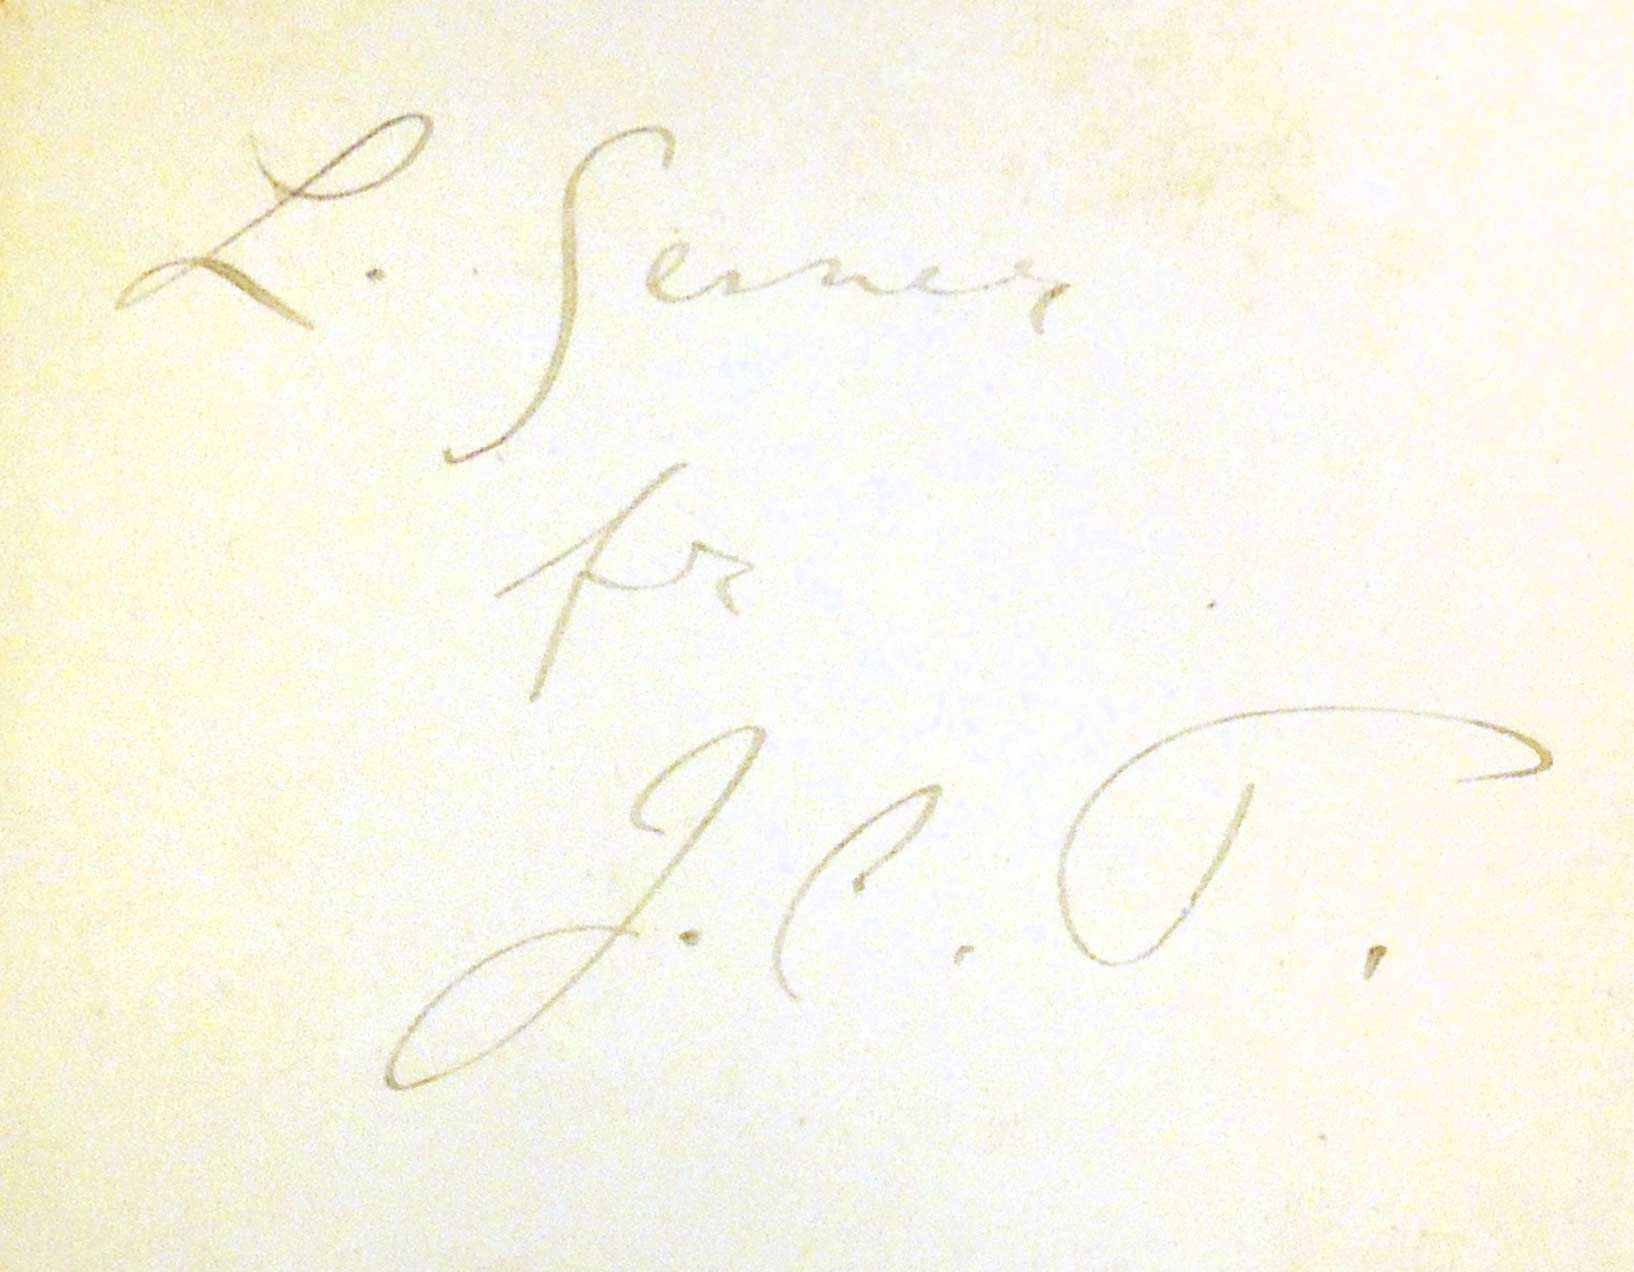 L. Serner
fr
J. C. T.